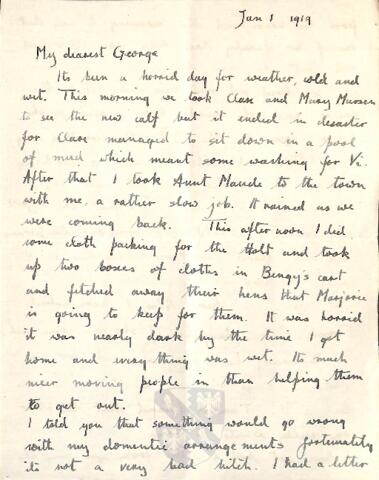 Jan 1 1919
My dearest George
Its been a horrid day for weather, cold and
wet. This morning we took Clare and Mary
to see the new calf but it ended in desaster
for Clare managed to sit down in a pool
of mud which meant some washing for Vi.
After that I took Aunt Maude to the town
with me, a rather slow job. It rained as we
were coming back. This after noon I did
some cloth packing for the Holt and took
up two boxes of clothes in Bengy's cart
and fetched away their hens that Marjorie
is going to keep for them. It was horrid
it was nearly dark by the time I got
home and every thing was wet. Its much
nicer moving people in than helping them
to get out.
I told you that something would go wrong
with my domestic arrangements fortunately
its not a very bad hitch. I had a letter